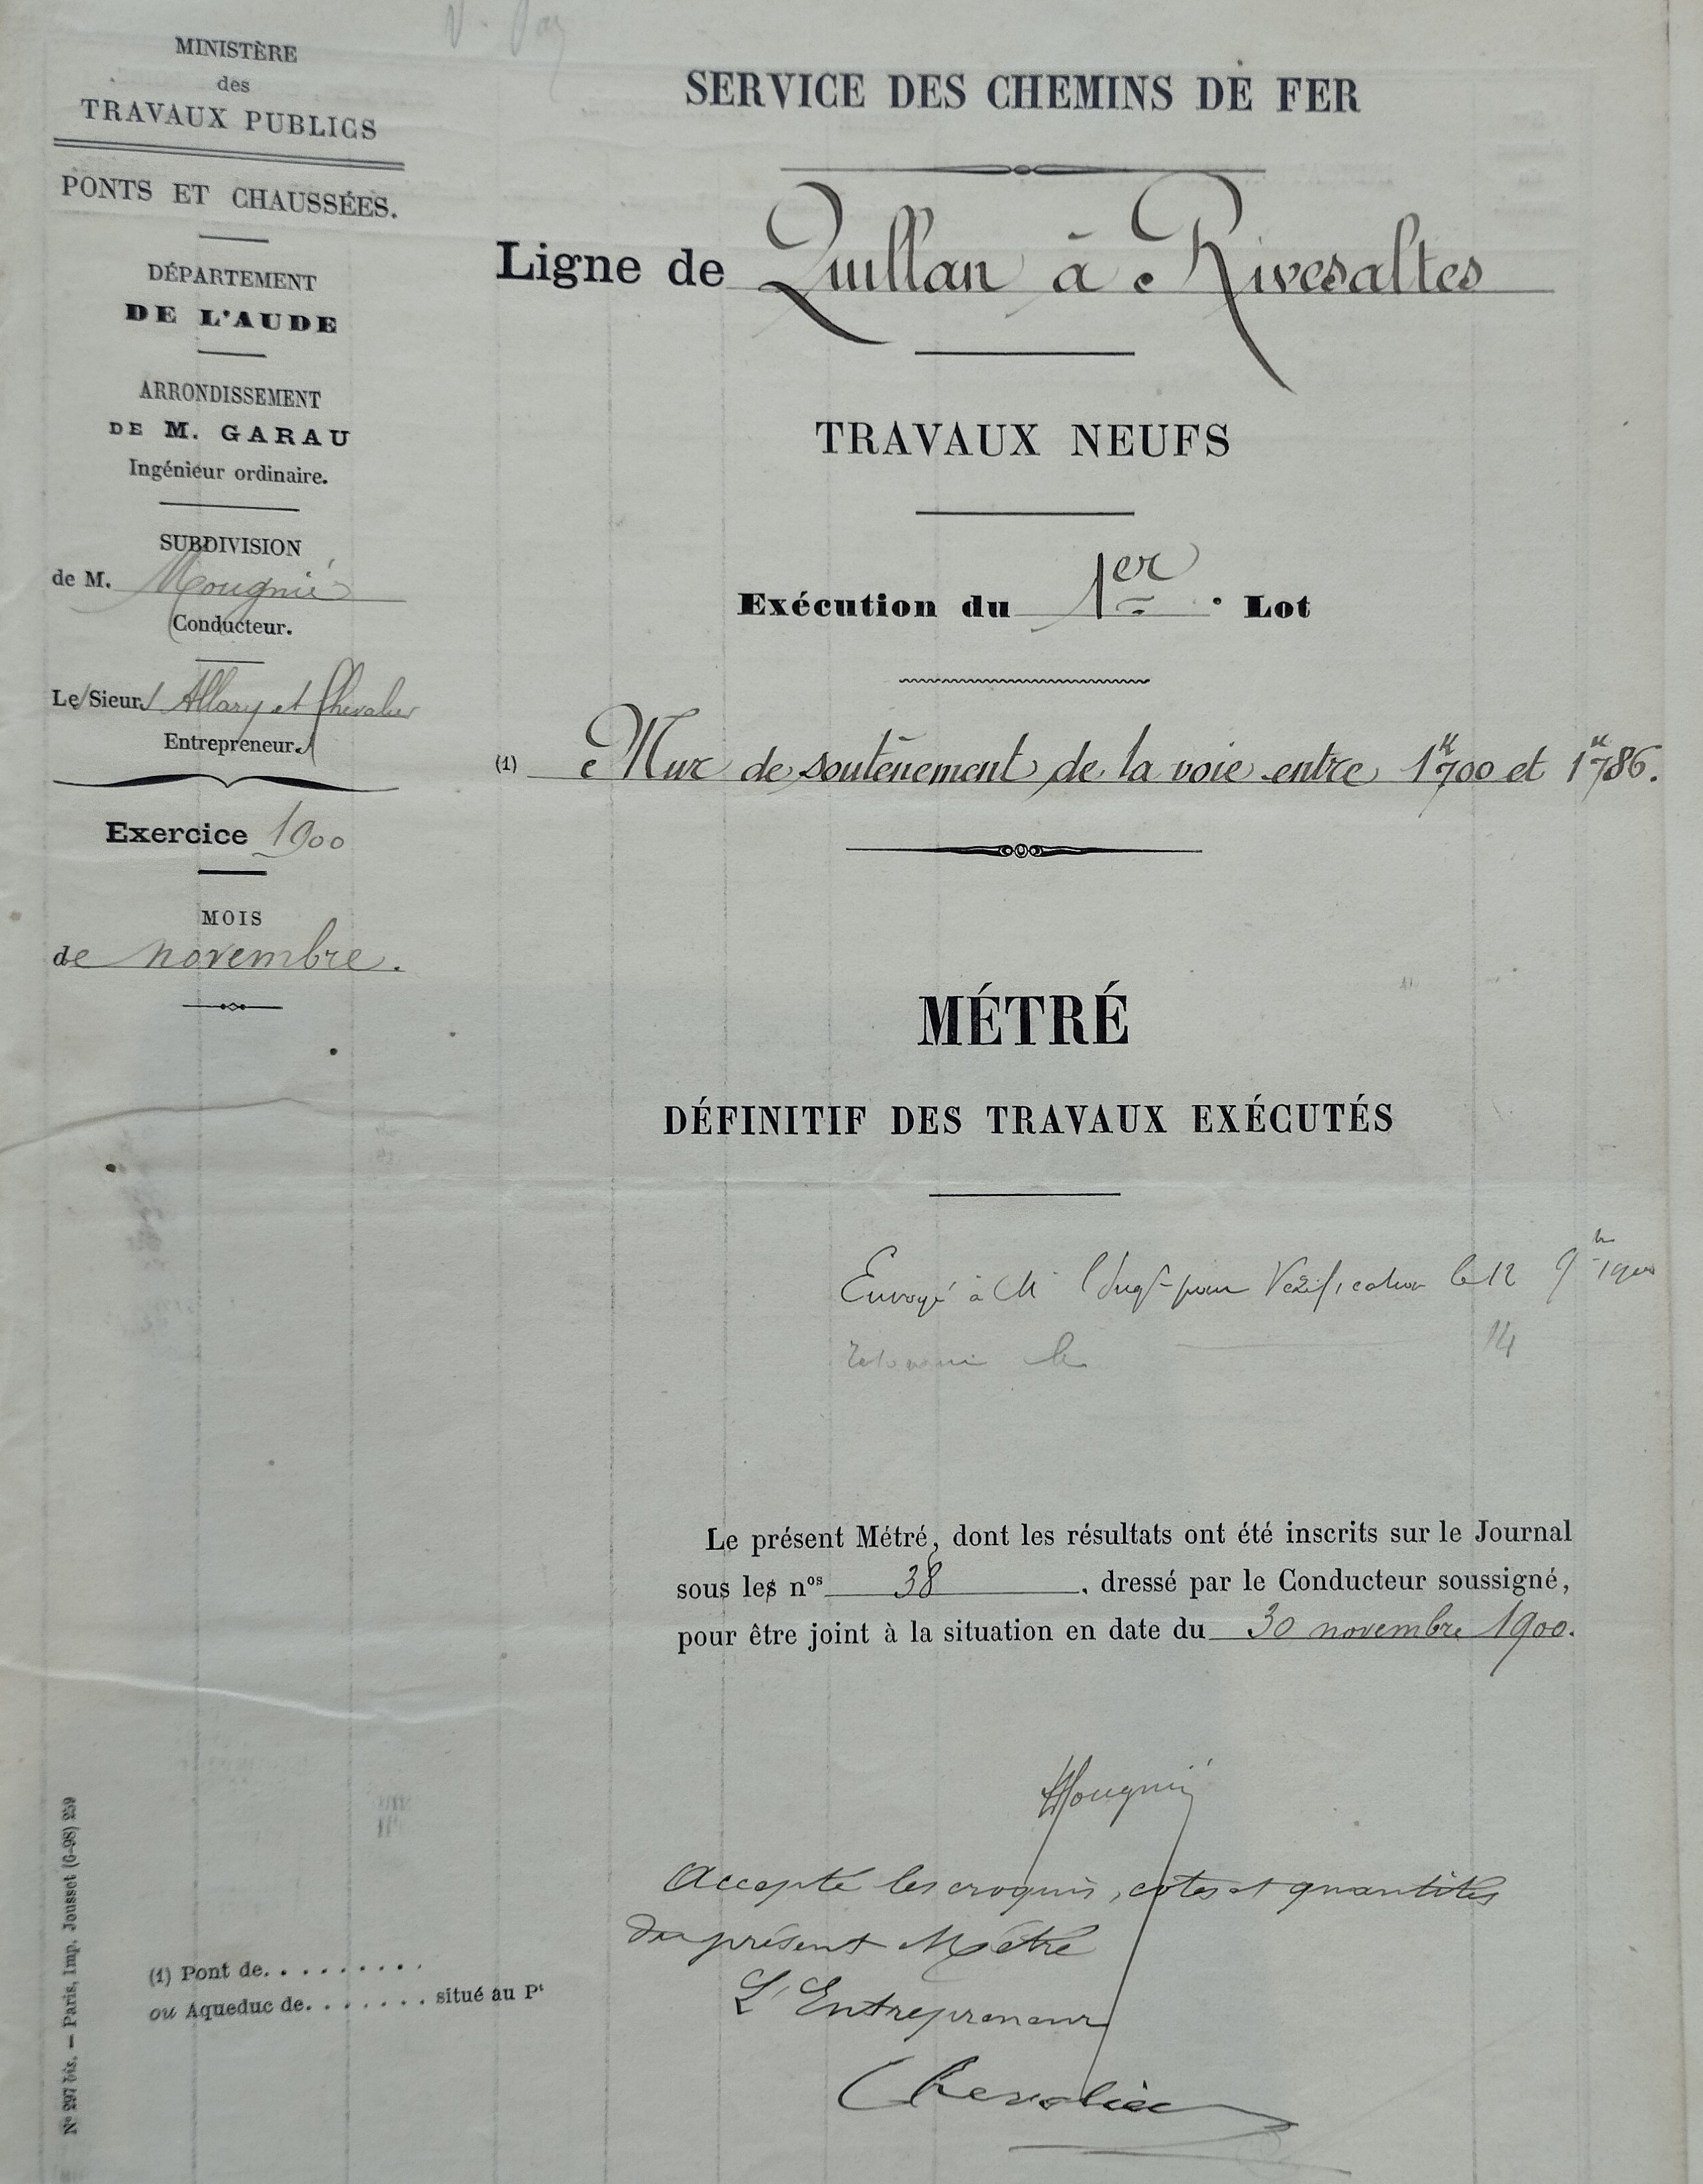 MINISTÈRE
des
TRAVAUX PUBLICS
PONTS ET CHAUSSÉES.
DÉPARTEMENT
DE L'AUDE
ARRONDISSEMENT
DE M. GARAU
Ingénieur ordinaire.
SUBDIVISION
de M. Mougnié
Conducteur.
Les Sieurs Allary et Chevalier
Entrepreneurs
Exercice 1900
MOIS
de novembre.
SERVICE DES CHEMINS DE FER
Ligne de Quillan à Rivesaltes
TRAVAUX NEUFS
Exécution du 1er Lot
(1) Mur de soutènement de la voie entre 1k700 et 1k786.
MÉTRÉ
DÉFINITIF DES TRAVAUX EXÉCUTÉS
Envoyé à M l'Ingr pour Vérification le 12 9bre 1900
retourné le 14
Le présent Métré, dont les résultats ont été inscrits sur le Journal
sous les nos 38, dressé par le Conducteur soussigné,
pour être joint à la situation en date du 30 novembre 1900.
Mougnié
Accepté les croquis, cotes et quantités
du présent Métré
L'Entrepreneur
Chevalier
(1) Pont de. . . . . . . . .
ou Aqueduc de. . . . . . . . situé au Pt
N° 297 bis. — Paris, Imp. Jousset (6-98) 259